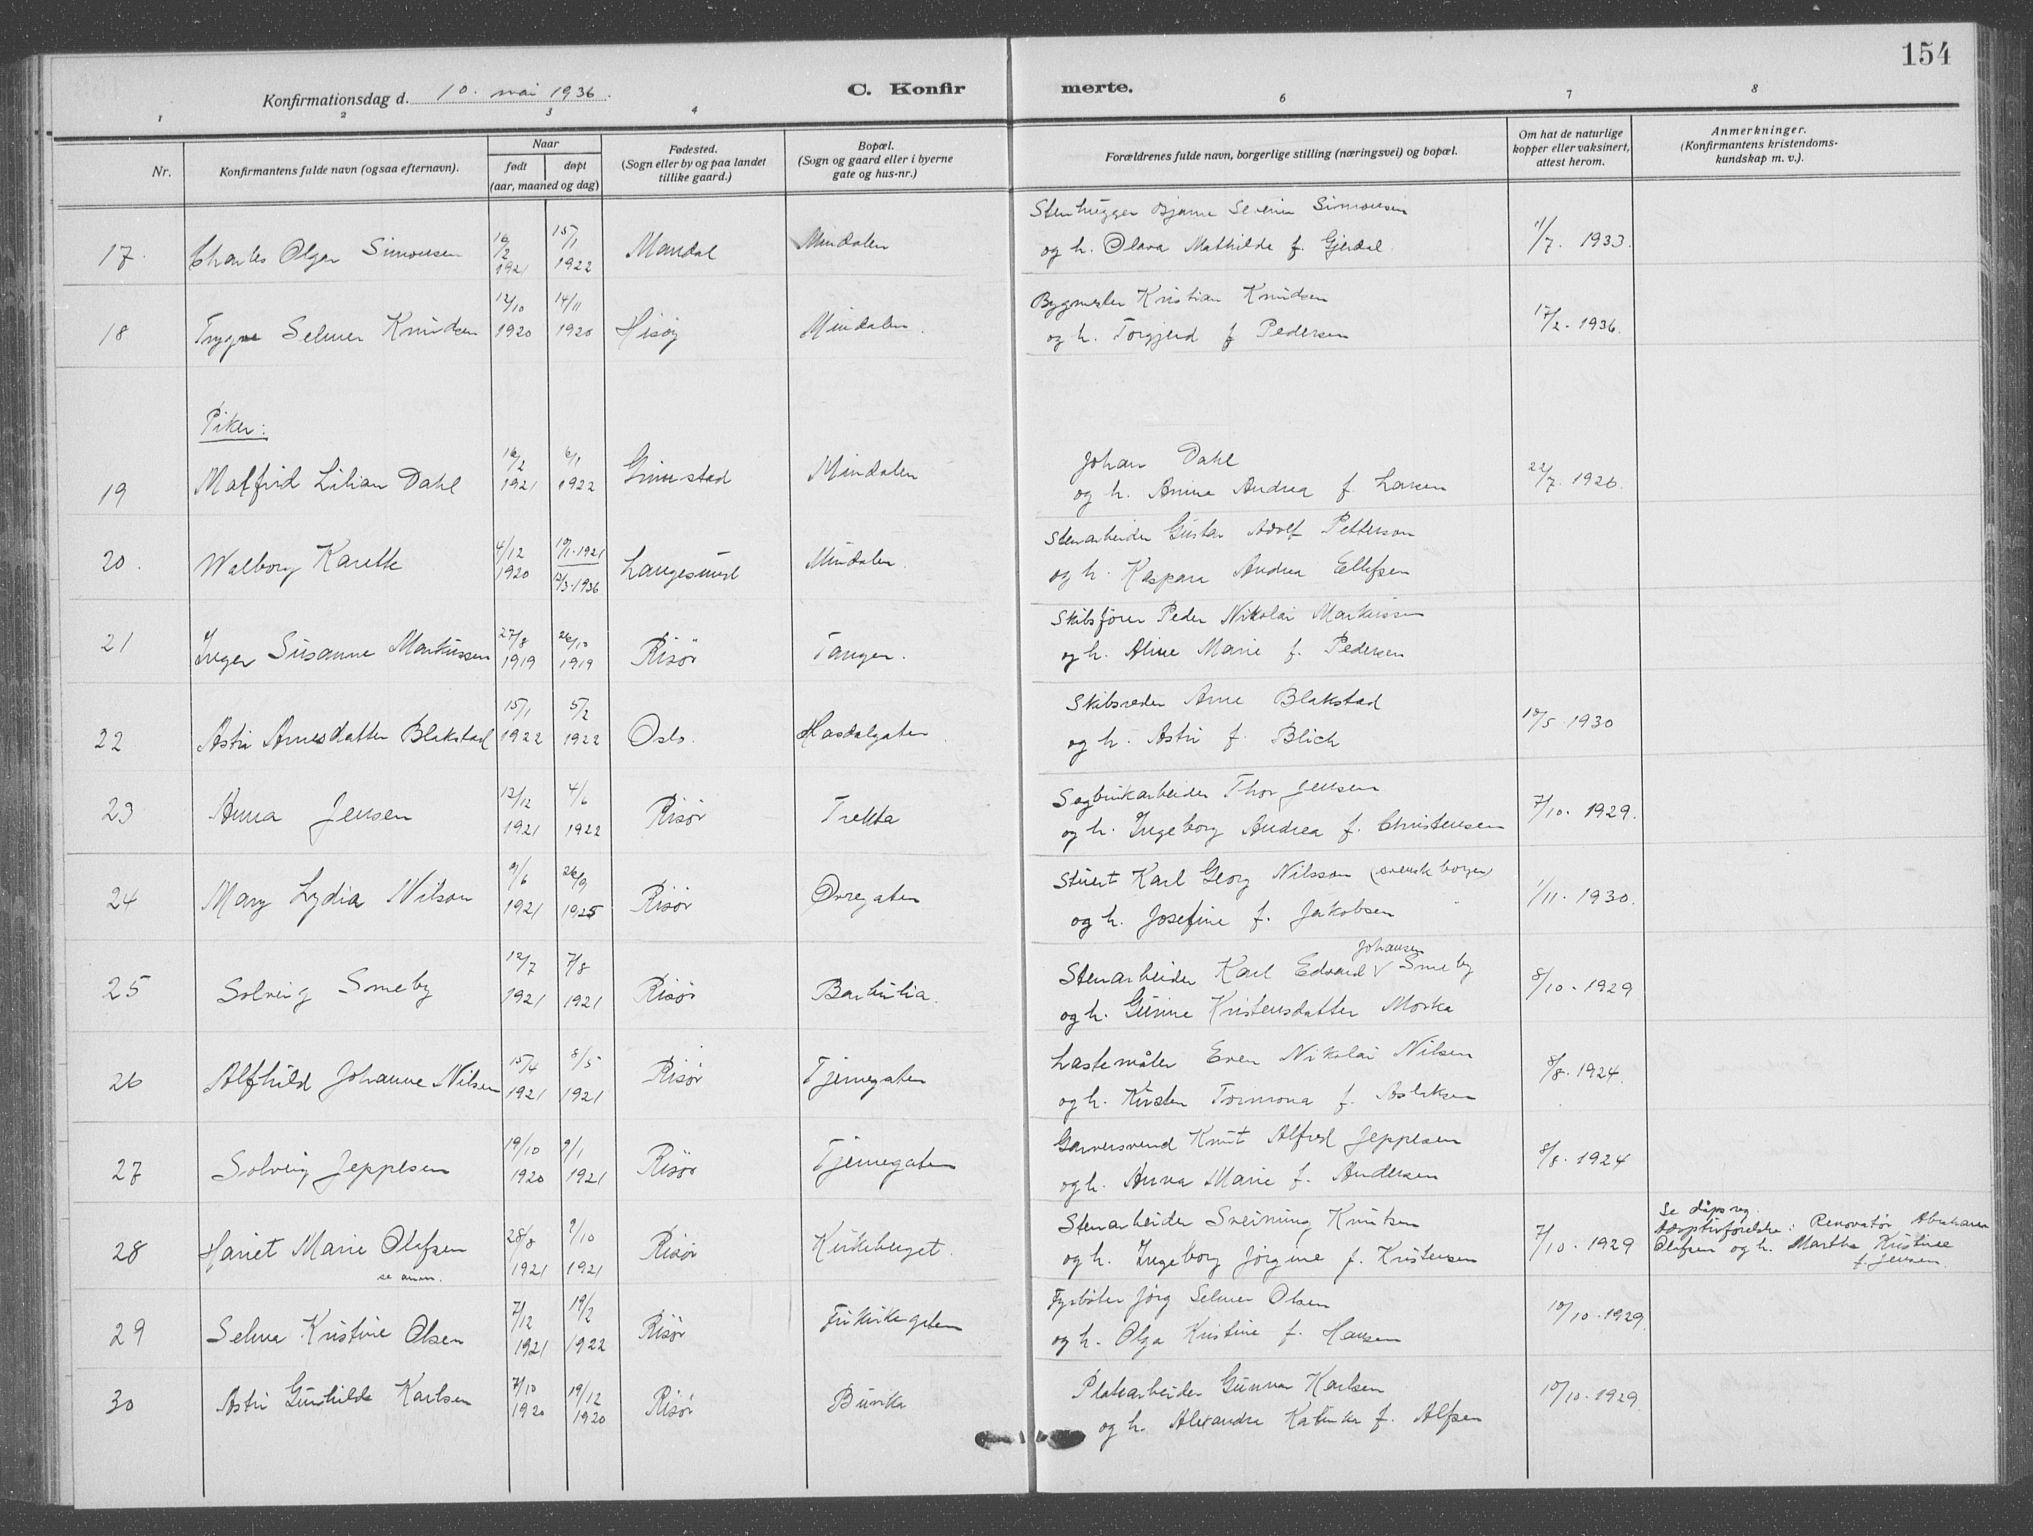 154
Konfirmationsdag d. 10. mai 1936.
C. Konfirmerte.
1 2 3 4 6 7 8
Nr.
Konfirmantens fulde navn (ogsaa efternavn).
Naar
født døpt
(aar, maaned og dag)
Fødested.
(Sogn eller by og paa landet
tillike gaard.)
Bopæl.
(Sogn og gaard eller i byerne
gate og hus-nr.)
Forældrenes fulde navn, borgerlige stilling (næringsvei) og bopæl.
Om hat de naturlige
kopper eller vaksinert,
attest herom.
Anmerkninger.
(Konfirmantens kristendoms-
kundskap m. v.).
17. Charles Olger Simonsen 16/2 1921 15/1 1922 Mandal Mindalen
Stenhugger Bjarne Severin Simonsen
og h. Olava Mathilde f. Gjerdal 11/7. 1933.
18 Trygve Selmer Knudsen 12/10 1920 14/11 1920 Hisøy Mindalen.
Bygmester Kristian Knudsen
og h. Torgjerd f Pedersen 17/2. 1936.
Piker:
19 Malfrid Lilian Dahl 16/2 1921 6/1 1922 Grimstad Mindalen
Johan Dahl
og h. Anine Andrea f. Larsen 22/7. 1926.
20. Walborg Karette 4/12 1920 10/1. 1921 12/3. 1936 Langesund Mindalen.
Stenarbeider Gustav Adolf Petterson
og h. Kaspara Andrea Ellefsen
21 Inger Susanne Markussen 27/8 1919 26/10 1919 Risør Tangen.
Skibsfører Peder Nikolai Markussen
og h. Aline Marie f. Pedersen
22 Astri Arnesdatter Blakstad 15/1 1922 5/2 1922 Oslo. Hasdalgaten.
Skibsreder Arne Blakstad
og h. Astri f. Blich 10/5. 1930
23 Anna Jensen 12/12 1921 4/6 1922 Risør Trekta
Sagbrukarbeider Thor Jensen
og h. Ingeborg Andrea f. Christensen 7/10. 1929.
24 Mary Lydia Nilson 9/6 1921 26/9 1925 Risør Øvregaten
Stuert Karl Georg Nilsson (svensk borger)
og h. Josefine f. Jakobsen 1/11. 1930.
25 Solveig Smeby 12/7 1921 7/8 1921 Risør Barbulia.
Johansen
Stenarbeider Karl Edvard V Smeby
og h. Gunne Kristensdatter Morka 8/10. 1929
26 Alfhild Johanne Nilsen 15/4 1921 8/5 1921 Risør Tjernegaten
Lastemåler Even Nikolai Nilsen
og h. Kirsten Tormona f. Aslaksen 8/8. 1924.
27 Solveig Jeppesen 19/10 1920 9/1 1921 Risør Tjernegaten
Garversvend Knut Alfred Jeppesen
og h. Anna Marie f. Andersen 8/8. 1924
28 Hariet Marie Olafsen 28/8 1921 9/10 1921 Risør Kirkehauget.
se anm.
Stenarbeider Sveinung Knutsen
og h. Ingeborg Jørgine f. Kristensen 7/10. 1929
Se dåpsreg.
Adoptivforeldre: Renovatør Abraham
Olafsen og h. Marthe Kristine
f. Jensen.
29 Selma Kristine Olsen 7/12 1921 19/2 1922 Risør
Fyrbøter Jörg Selmer Olsen
og h. Olga Kristine f. Hansen 10/10. 1929.
30 Astri Gunhilde Karlsen 7/10 1920 19/12 1920 Risør Buvika
Platearbeider Gunnar Karlsen
og h. Alexandra Katinka f. Alfsen 10/10. 1929.